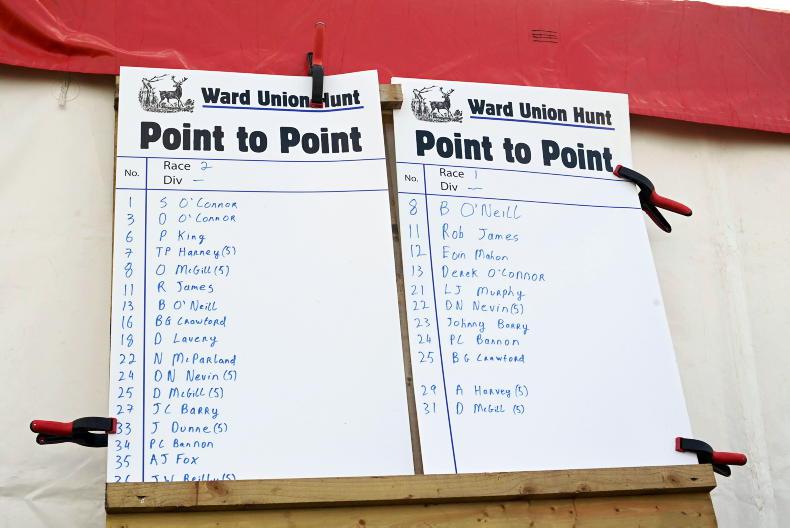 Ward Union Hunt
Point to Point
No. Race 2
Div –
1 S O'Connor
3 D O'Connor
6 P King
7 TP Harney (5)
8 O McGill (5)
11 R James
13 B O'Neill
16 BG Crawford
18 D Lavery
22 N McParland
24 DN Nevin (5)
25 D McGill (5)
27 JC Barry
33 J Dunne (5)
34 PC Bannon
35 AJ Fox
JW Reilly (5)
Ward Union Hunt
Point to Point
No. Race 1
Div –
8 B O'Neill
11 Rob James
12 Eoin Mahon
13 Derek O'Connor
21 LJ Murphy
22 DN Nevin (5)
23 Johnny Barry
24 PC Bannon
25 BG Crawford
29 A Harvey (5)
31 D McGill (5)